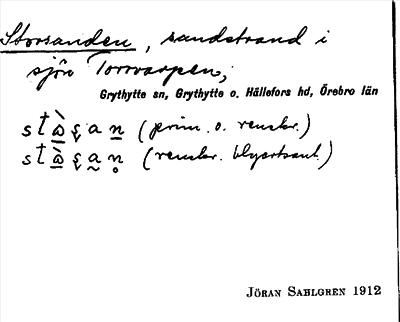 Storsanden, sandstrand i
sjön Torrvarpen;
Grythytte sn, Grythytte o. Hällefors hd, Örebro län
(prim. o. renskr.)
(renskr. blyertsant.)
JÖRAN SAHLGREN 1912